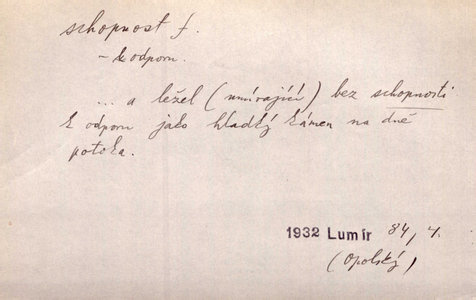 schopnost f.
– k odporu.
... a ležel (umírající) bez schopnosti
k odporu jako hladký kámen na dně
potoka.
1932 Lumír 84, 4.
(Opolský)